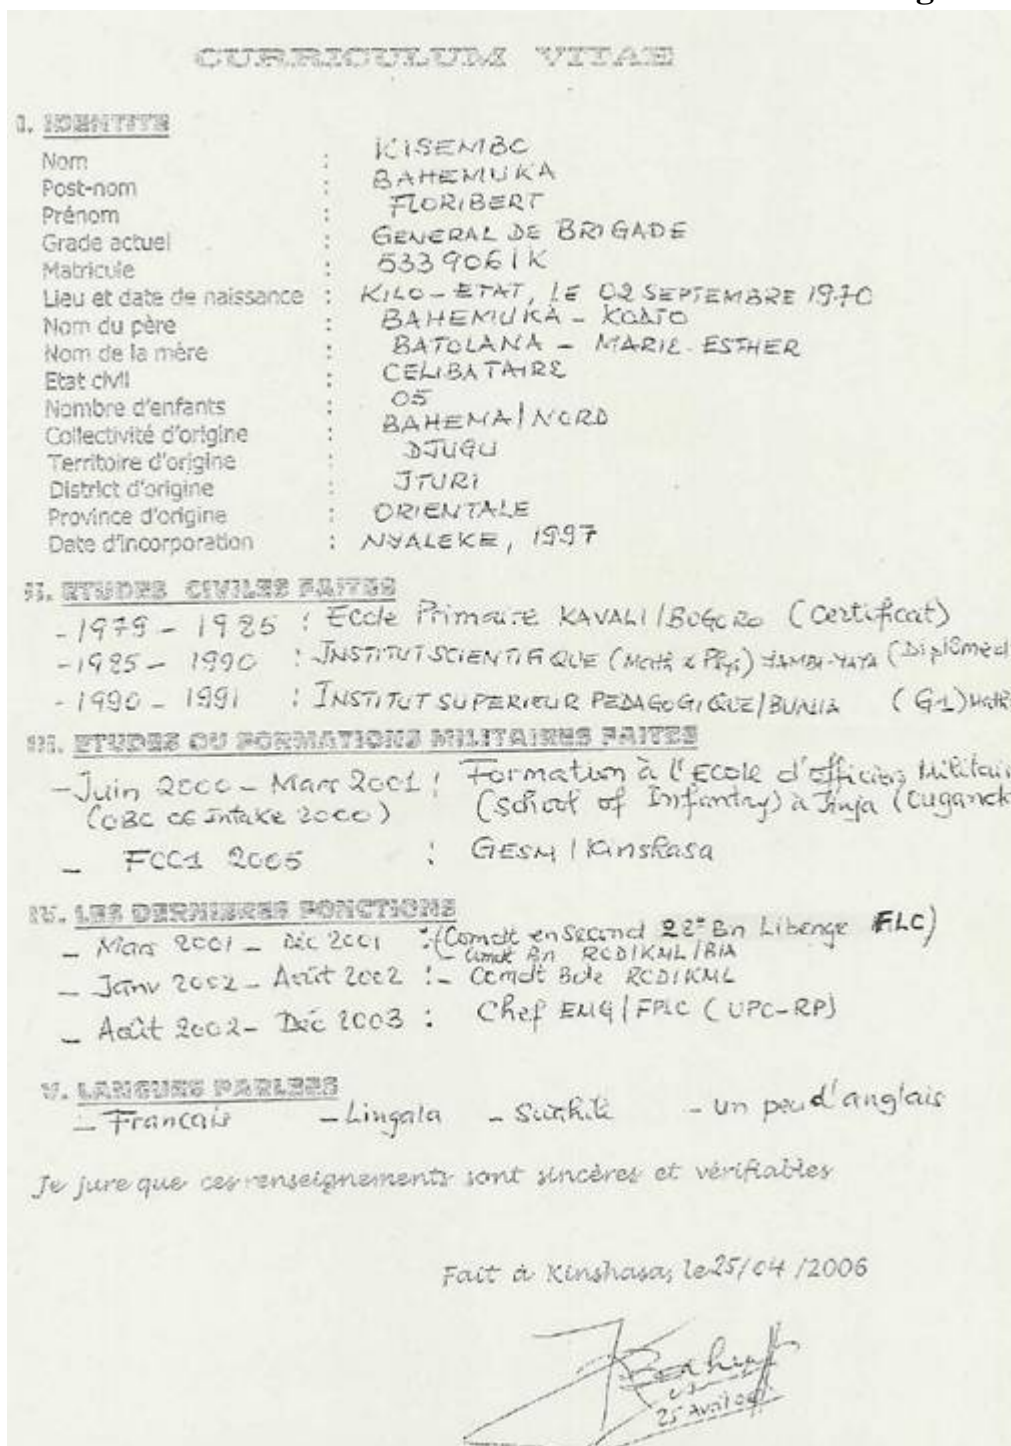 CURRICULUM VITAE
I. IDENTITE
Nom : KISEMBO
Post-nom : BAHEMUKA
Prénom : FLORIBERT
Grade actuel : GENERAL DE BRIGADE
Matricule : 5339061K
Lieu et date de naissance : KILO-ETAT, LE 02 SEPTEMBRE 1970
Nom du père : BAHEMUKA -
Nom de la mère : BATOLANA - MARIE-ESTHER
Etat civil : CELIBATAIRE
Nombre d'enfants : 05
Collectivité d'origine : BAHEMA/NORD
Territoire d'origine : DJUGU
District d'origine : ITURI
Province d'origine : ORIENTALE
Date d'incorporation : NYALEKE, 1997
II. ETUDES CIVILES FAITES
- 1979 - 1985 : Ecole Primaire KAVALI/BOGORO (Certificat)
- 1985 - 1990 : INSTITUT SCIENTIFIQUE (Math & Phys) (Diplôme
- 1990 - 1991 : INSTITUT SUPERIEUR PEDAGOGIQUE/BUNIA (G1) Math
III. ETUDES OU FORMATIONS MILITAIRES FAITES
- Juin 2000 - Mars 2001 : Formation à l'Ecole d'officiers Militai
(OBC 06 Intake 2000) (School of Infantry) à Jinja (Ougand
- FCC1 2005 : GESM/Kinshasa
IV. LES DERNIERES FONCTIONS
- Mars 2001 - Déc 2001 : (Comdt en Second 22e Bn Libenge FLC)
- Comdt Bn RCD/KML/BIA
- Janv 2002 - Août 2002 : - Comdt Bde RCD/KML
- Août 2002 - Déc 2003 : Chef EMG/FPLC (UPC-RP)
V. LANGUES PARLEES
- Francais - Lingala - Swahili - un peu d'anglais
Je jure que ces renseignements sont sincères et vérifiables
Fait à Kinshasa, le 25/04/2006
25 Avril 06